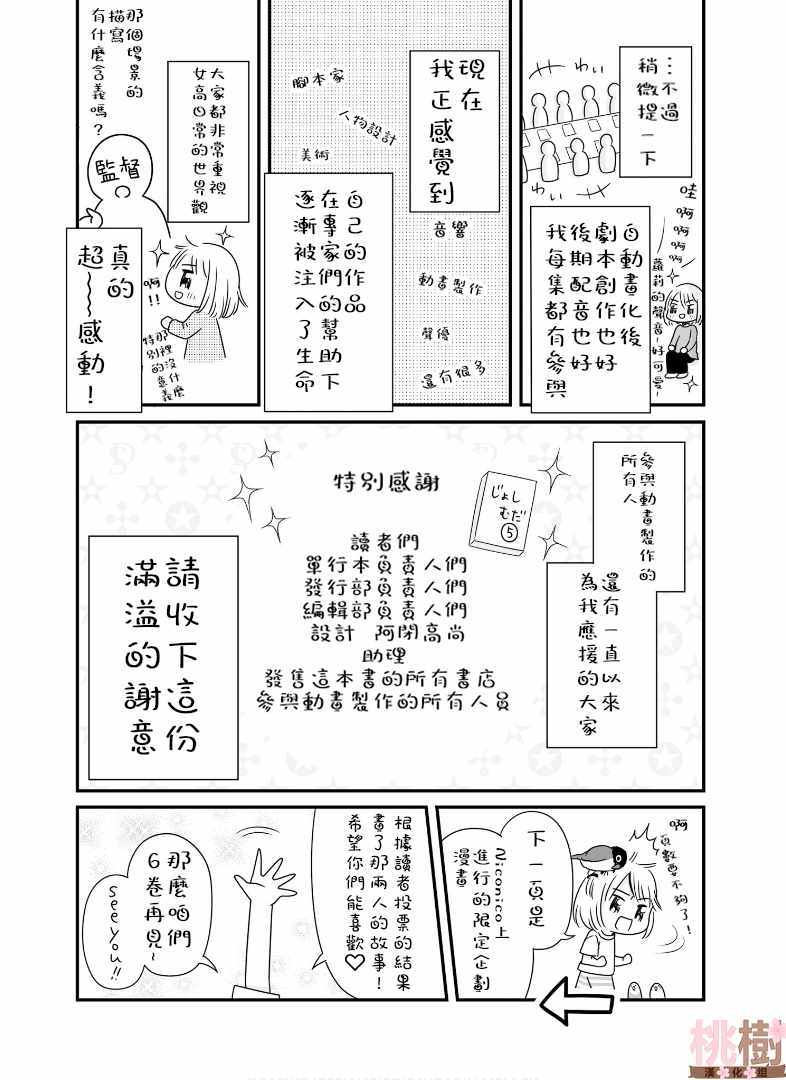 …不過
稍微提一下
わぃ
わぃ
哇啊啊啊啊
蘿莉的聲音~好可愛~
自動畫化後
劇本創作也好
後期配音也好
我每集都有參與
現在
我正感覺到
腳本家
人物設計
美術
音響
動畫製作
聲優
還有很多
自己的作品
在專家們的幫助下
逐漸被注入了生命
大家都非常重視
女高日常的世界觀
那個場景的
描寫
有什麼含義嗎?
監督
啊!!
那裡沒什麼
特別的意義
真的
超~~感動!
參與動畫製作的
所有人
還有一直以來
為我應援的大家
じょし
むだ
⑤
特別感謝
讀者們
單行本負責人們
發行部負責人們
編輯部負責人們
設計 阿閉高尚
助理
發售這本書的所有書店
參與動畫製作的所有人員
請收下這份
滿溢的謝意
啊
頁數要不夠了!
下一頁是
Niconico上
進行的限定企劃
漫畫
根據讀者投票的結果
畫了那兩人的故事!
希望你們能喜歡♡
那麼咱們
6卷再見~
see you!!
桃樹
漢化組